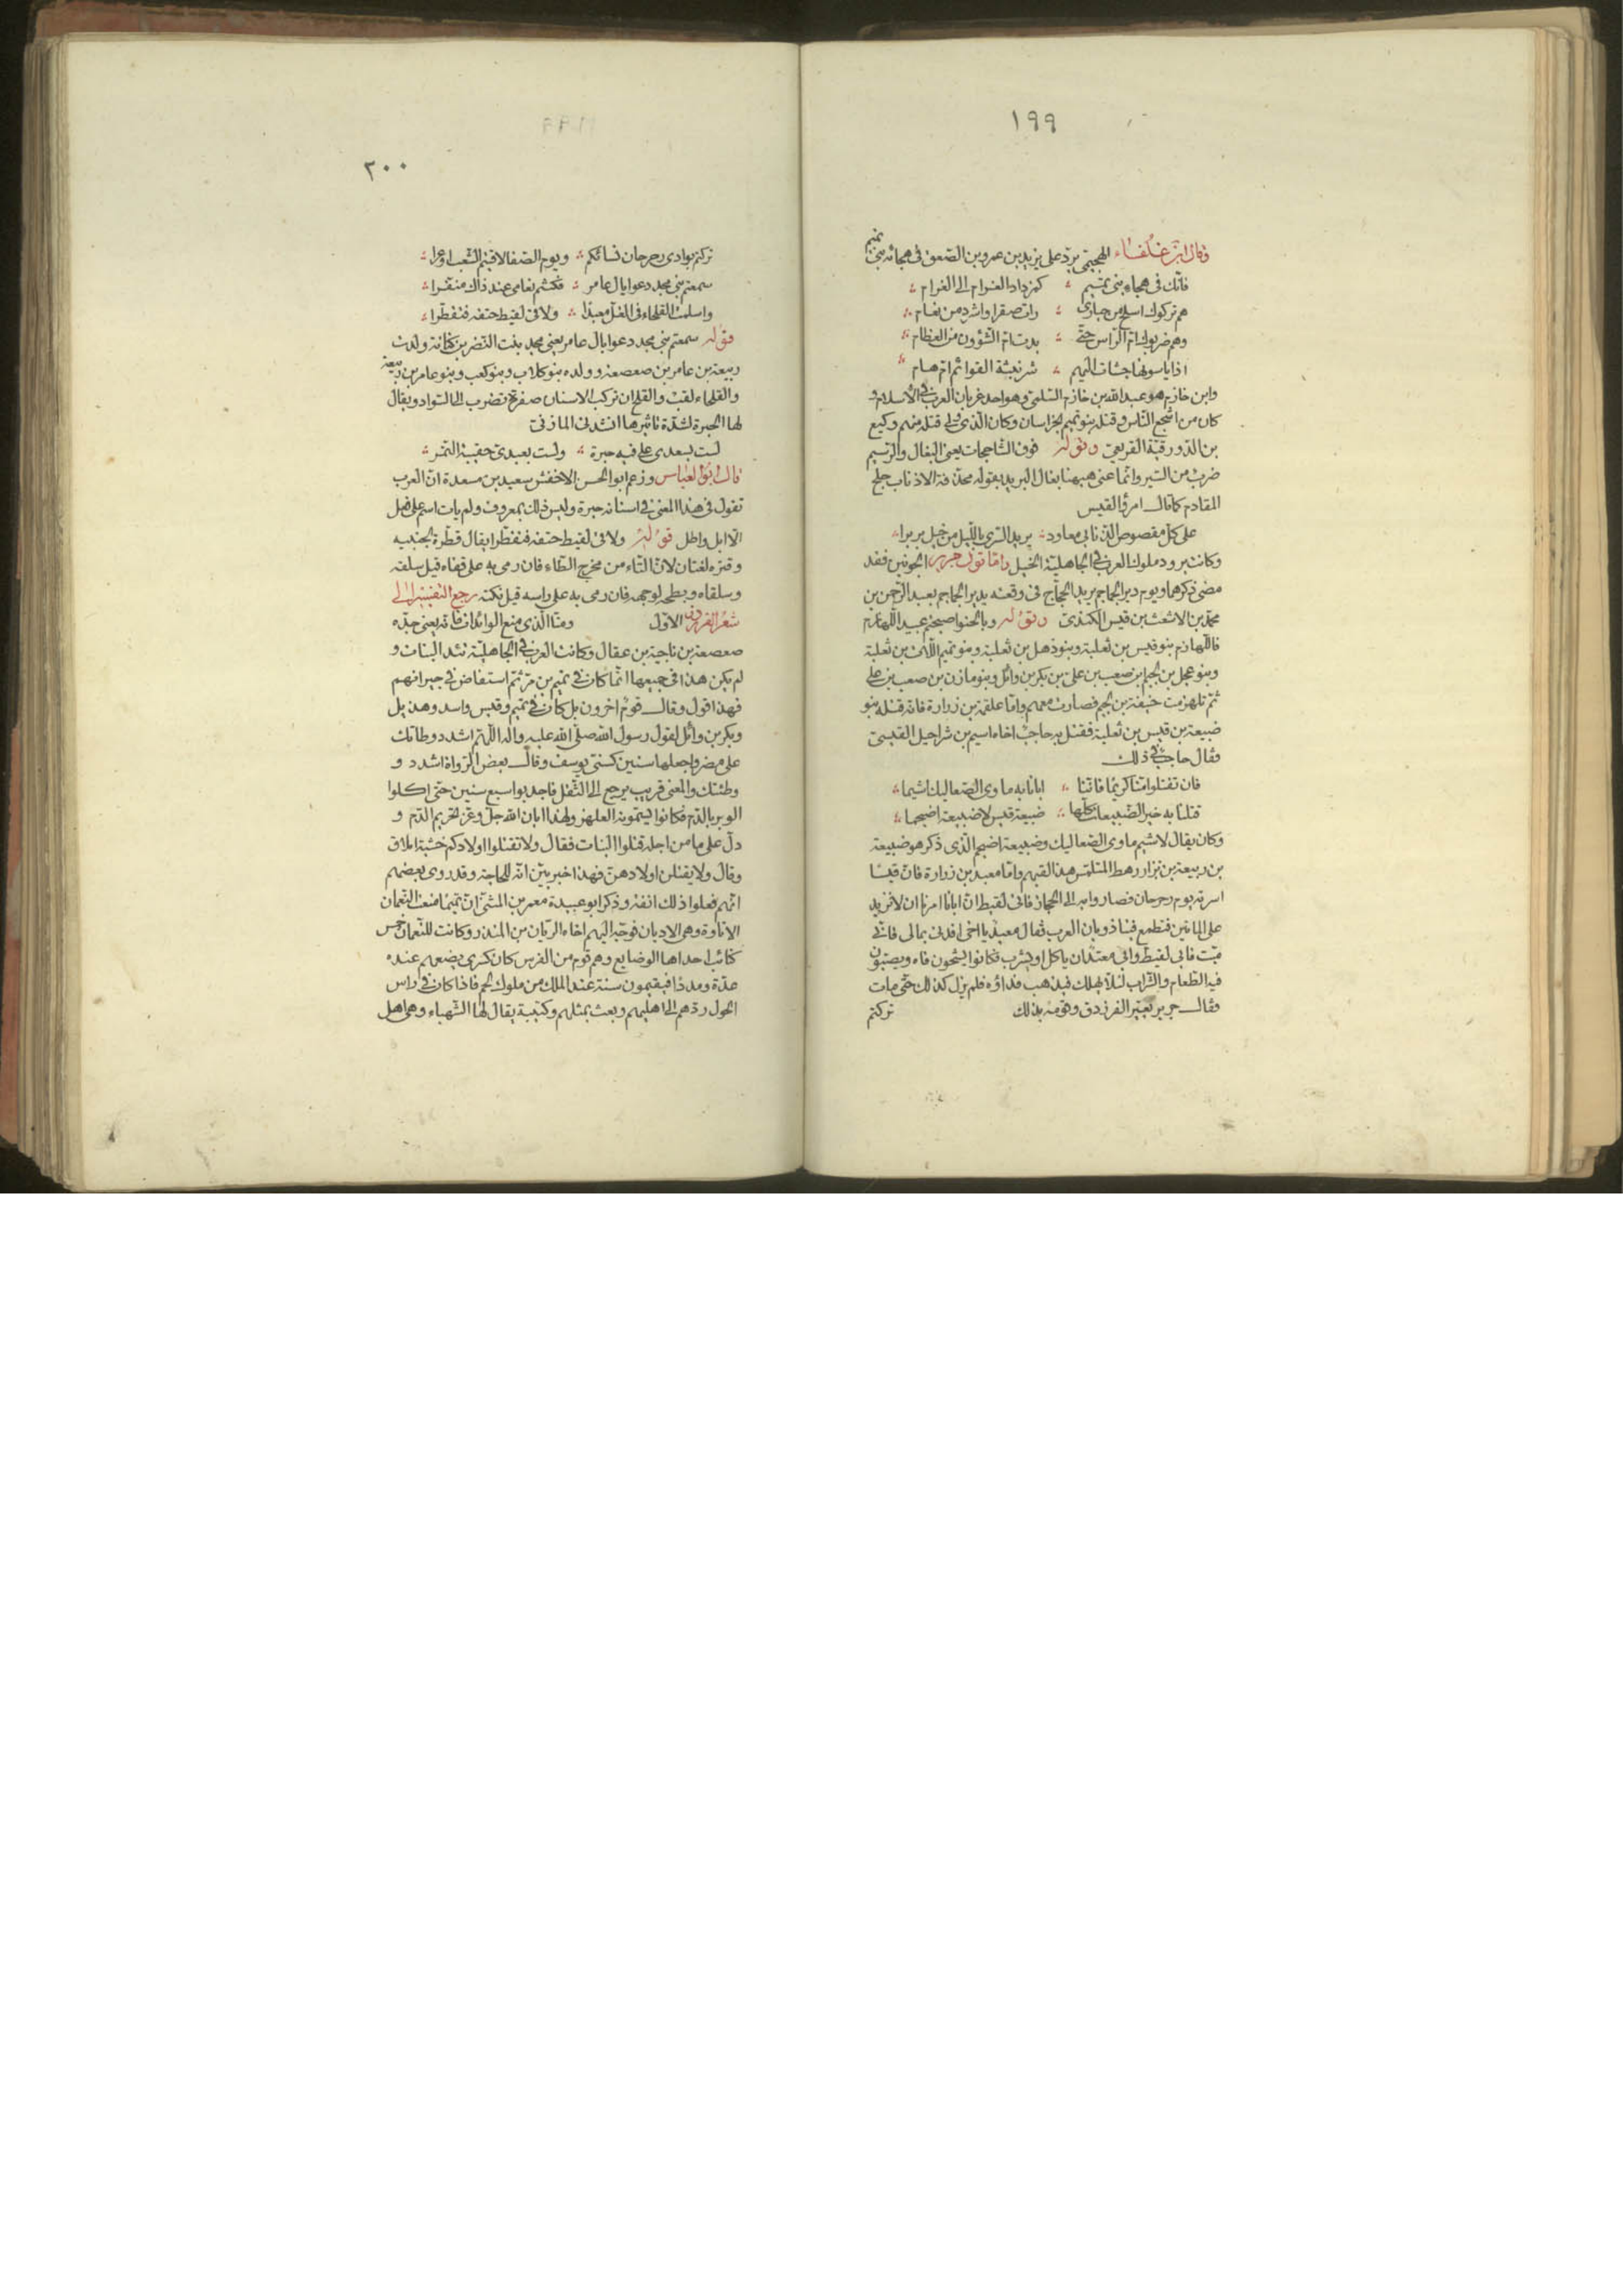 ١٩٩
وقال ابن غلفاء الهجيمي يرد على يزيد بن عمرو بن الصعق في هجائه بني تميم
فانك في هجاء بني تميم ؞ كمزداد الغرام الى الغرام ؞
هم تركوك اسلح من حبارى ؞ رات صقرا واشرد من نعام ؞
وهم ضربوك ام الراس حتى ؞ بدت ام الشؤون من العظام ؞
اذا ياسونها جشات اليهم ؞ شرنبثة القوائم ام هام ؞
وابن خازم هو عبد الله بن خازم السلمى وهو احد غربان العرب في الاسلام و
كان من اشجع الناس وقتله بنو تميم بخراسان وكان الذى ولى قتله منهم وكيع
بن الدورقية القريعى وقوله فوق الشاحجات يعنى البغال والرسيم
ضرب من السير وانما عنى ههنا بغال البريد بقوله محذفة الاذناب جلح
المقادم كما قال امرؤ القيس
على كل مقصوص الذنابى معاود ؞ بريد السرى بالليل من خيل بربرا ؞
وكانت برود ملوك العرب في الجاهلية الخيل واما قول جرير الجونين فقد
مضى ذكرهما ويوم دير الجماجم يريد الحجاج في وقعته بدير الجماجم بعبد الرحمن بن
محمد بن الاشعث بن قيس الكندى وقوله وبالحنو اصبحتم عبيد اللهازم
فاللهازم بنو قيس بن ثعلبة وبنو ذهل بن ثعلبة وبنو تميم اللات بن ثعلبة
وبنو عجل بن لجيم بن صعب بن على بن بكر بن وائل وبنو مازن بن صعب بن على
ثم تلهزمت حنيفة بن لجيم فصارت معهم واما علقمة بن زرارة فانه قتله بنو
ضبيعة بن قيس بن ثعلبة فقتل به حاجب اخاه اشيم بن شراحيل القيسى
وقال حاجب في ذلك
فان تقتلوا منا كريما فاننا ؞ ابانا به ماوى الصعاليك اشيما ؞
قتلنا به خير الضبيعات كلها ؞ ضبيعة قيس لا ضبيعة اضجما ؞
وكان يقال لاشيم ماوى الصعاليك وضبيعة اضجم الذى ذكر هو ضبيعة
بن ربيعة بن نزار رهط المتلمس هذا القيهم واما معبد بن زرارة فان قيسا
اسرته يوم رحرحان فصاروا به الى الحجاز فاتى لقيط ان ابانا امرنا ان لا نزيد
على المائتين فتطمع فينا ذوبان العرب فقال معبد يا اخى افدنى بمالى فانى
ميت فابى لقيط وابى معبد ان ياكل او يشرب فكانوا يشحون فاه ويصبون
فيه الطعام والشراب لئلا يهلك فيذهب فداؤه فلم يزل كذلك حتى مات
وقال جرير يعير الفرزدق وقومه بذلك تركتم
٢٠٠
تركتم بوادى رحرحان نسائكم ؞ ويوم الصفا لاقيتم الشعب اوعرا ؞
سمعتم بنى مجد دعوا يال عامر ؞ فكنتم نعامى عند ذاك منفرا ؞
واسلمت القلحاء في الغل معبدا ؞ ولاقى لقيط حتفه فتقطرا ؞
قوله سمعتم بنى مجد دعوا يال عامر يعنى مجد بنت النضر بن كنانة ولدت
ربيعة بن عامر بن صعصعة وولده بنو كلاب وبنو كعب وبنو عامر بن ربيعة
والقلحاء لقب والقلح ان تركب الاسنان صفرة تضرب الى السواد ويقال
لها الحبرة لشدة تاثيرها انشدنى المازنى
لست بسعدى على فيه حبرة ؞ ولست بعبدى حقيبة التمر ؞
قال ابو العباس وزعم ابو الحسن الاخفش سعيد بن مسعدة ان العرب
تقول في هذا المعنى في اسنانه حبرة وليس ذلك بمعروف ولم يات اسم على فعل
الا ابل واطل قوله ولاقى لقيط حتفه فتقطرا يقال قطره لجنبيه
وقتره لغتان لان التاء من مخرج الطاء فان رمى به على قفاه قيل سلقه
وسلقاه وبطحه لوجهه فان رمى به على راسه قيل نكته رجع التفسير الى
شعر الفرزدق الاول ومنا الذى منع الوائدات فانه يعنى جده
صعصعة بن ناجية بن عقال وكانت العرب في الجاهلية تئد البنات و
لم يكن هذا في جميعها انما كان في تميم بن مر ثم استفاض في جيرانهم
فهذا قول وقال قوم اخرون بل كان في تميم وقيس واسد وهذيل
وبكر بن وائل لقول رسول الله صلى الله عليه واله اللهم اشدد وطاتك
على مضر واجعلها سنين كسنى يوسف وقال بعض الرواة اشدد و
وطئتك والمعنى قريب يرجع الى الثقل فاجدبوا سبع سنين حتى اكلوا
الوبر بالدم فكانوا يسمونه العلهز ولهذا ابان الله جل وعز تحريم الدم و
دل على ما من اجله قتلوا البنات فقال ولا تقتلوا اولادكم خشية املاق
وقال ولا يقتلن اولادهن فهذا خبر بين انه للحاجة وقد روى بعضهم
انهم فعلوا ذلك انفة وذكر ابو عبيدة معمر بن المثنى ان تميما منعت النعمان
الاتاوة وهى الاديان فوجه اليهم اخاه الريان بن المنذر وكانت للنعمان خمس
كتائب احداها الوضايع وهم قوم من الفرس كان كسرى يضعهم عنده
عدة ومددا فيقيمون سنة عند الملك من ملوك لخم فاذا كان في راس
الحول ردهم الى اهليهم وبعث بمثلهم وكتيبة يقال لها الشهباء وهى اهل